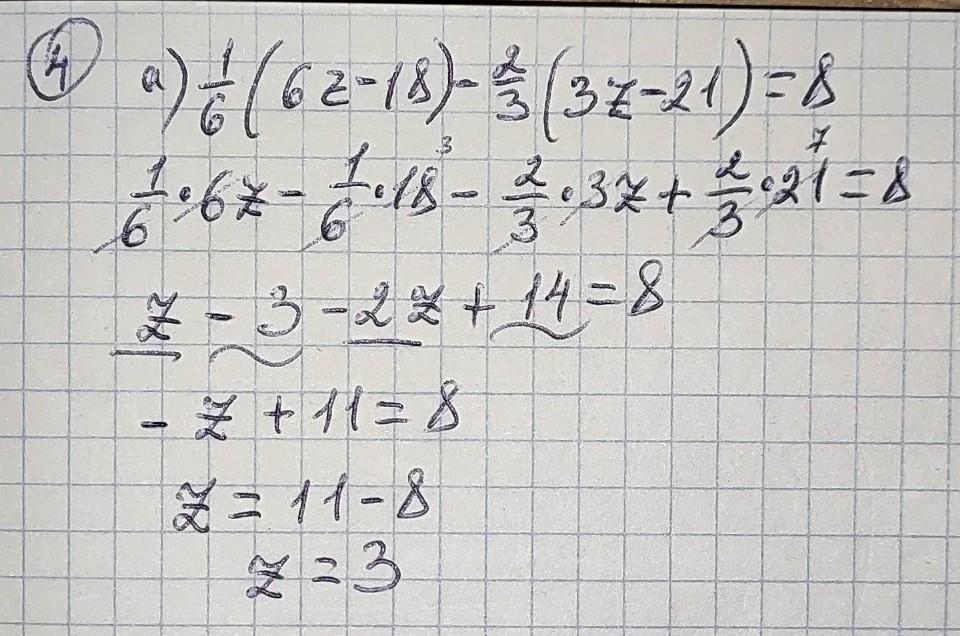 4 a) 1/6 (6z-18)-2/3 (3z-21)=8
1/6 · 6z - 1/6 · 18 3 - 2/3 · 3z + 2/3 · 21 7 = 8
z - 3 - 2z + 14 = 8
- z + 11 = 8
z = 11 - 8
z = 3